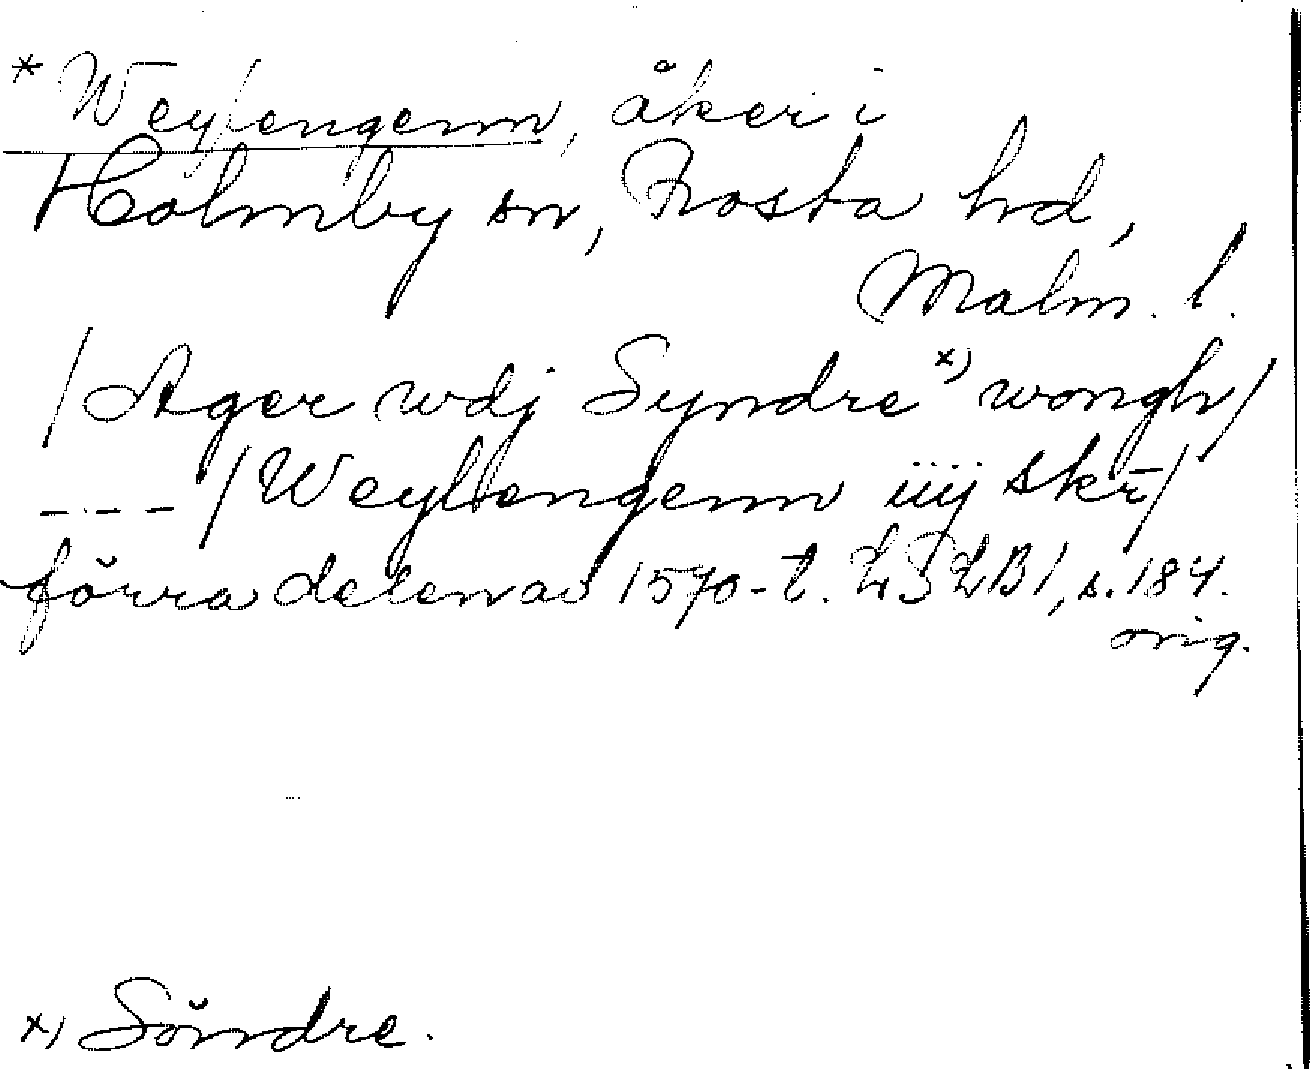 * Weylengenn, åker i
Holmby sn, Frosta hd,
Malm. l.
/Ager wdj Syndre x) wongh/
--- /Weylengenn iiij skr/
förra delen av 1570-t. LSLB1, s. 184.
orig.
x) Söndre.